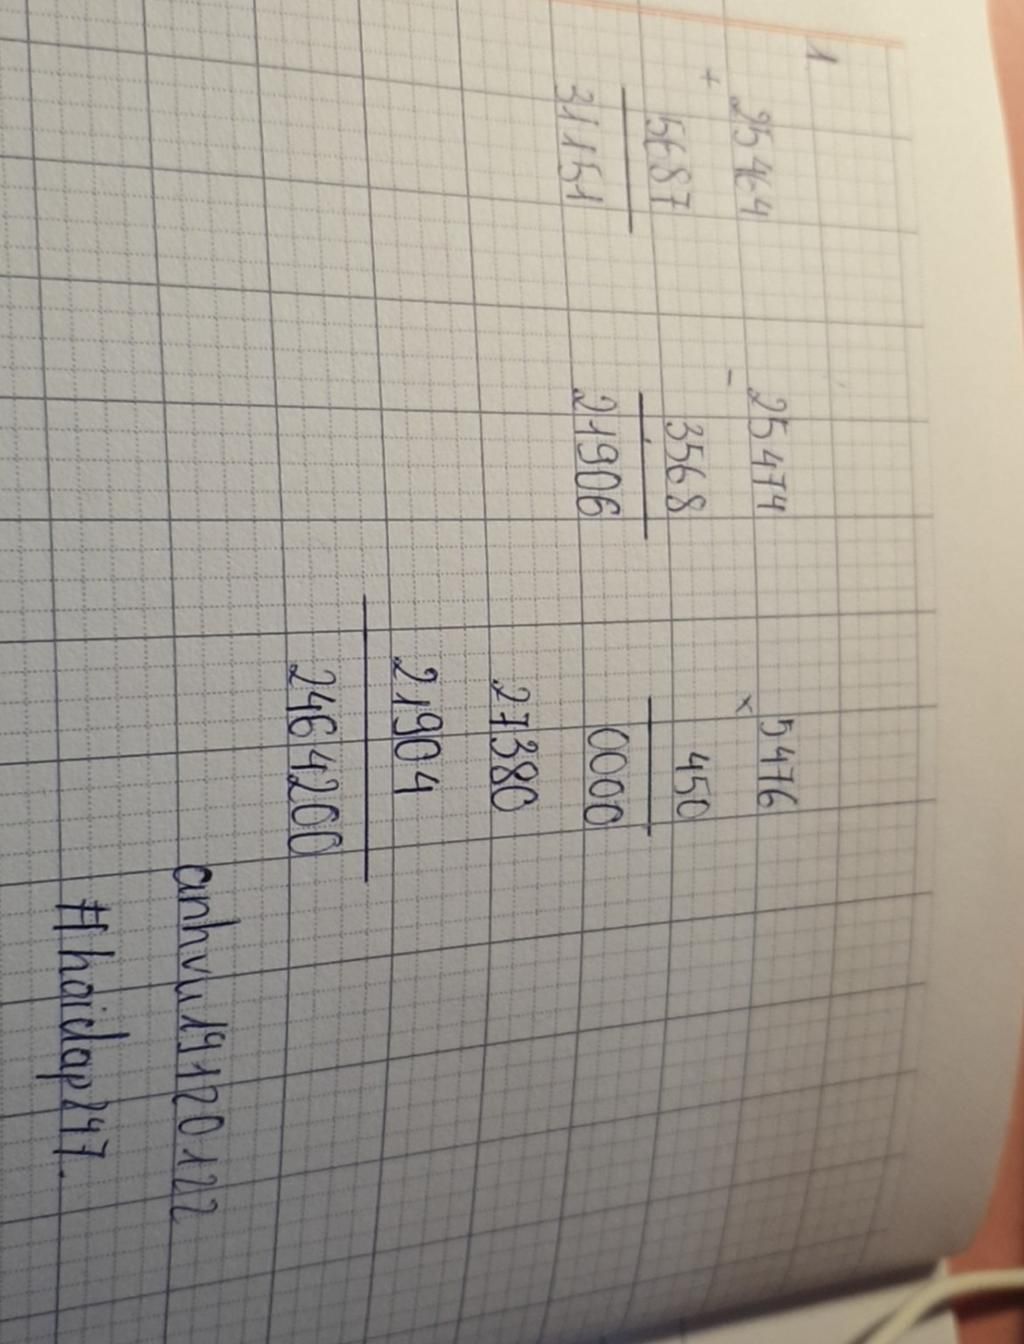 1
+ 25464
5687
31151
- 25474
3568
21906
x 5476
450
0000
27380
21904
2464200
anhvu19120122
#hoidap247.